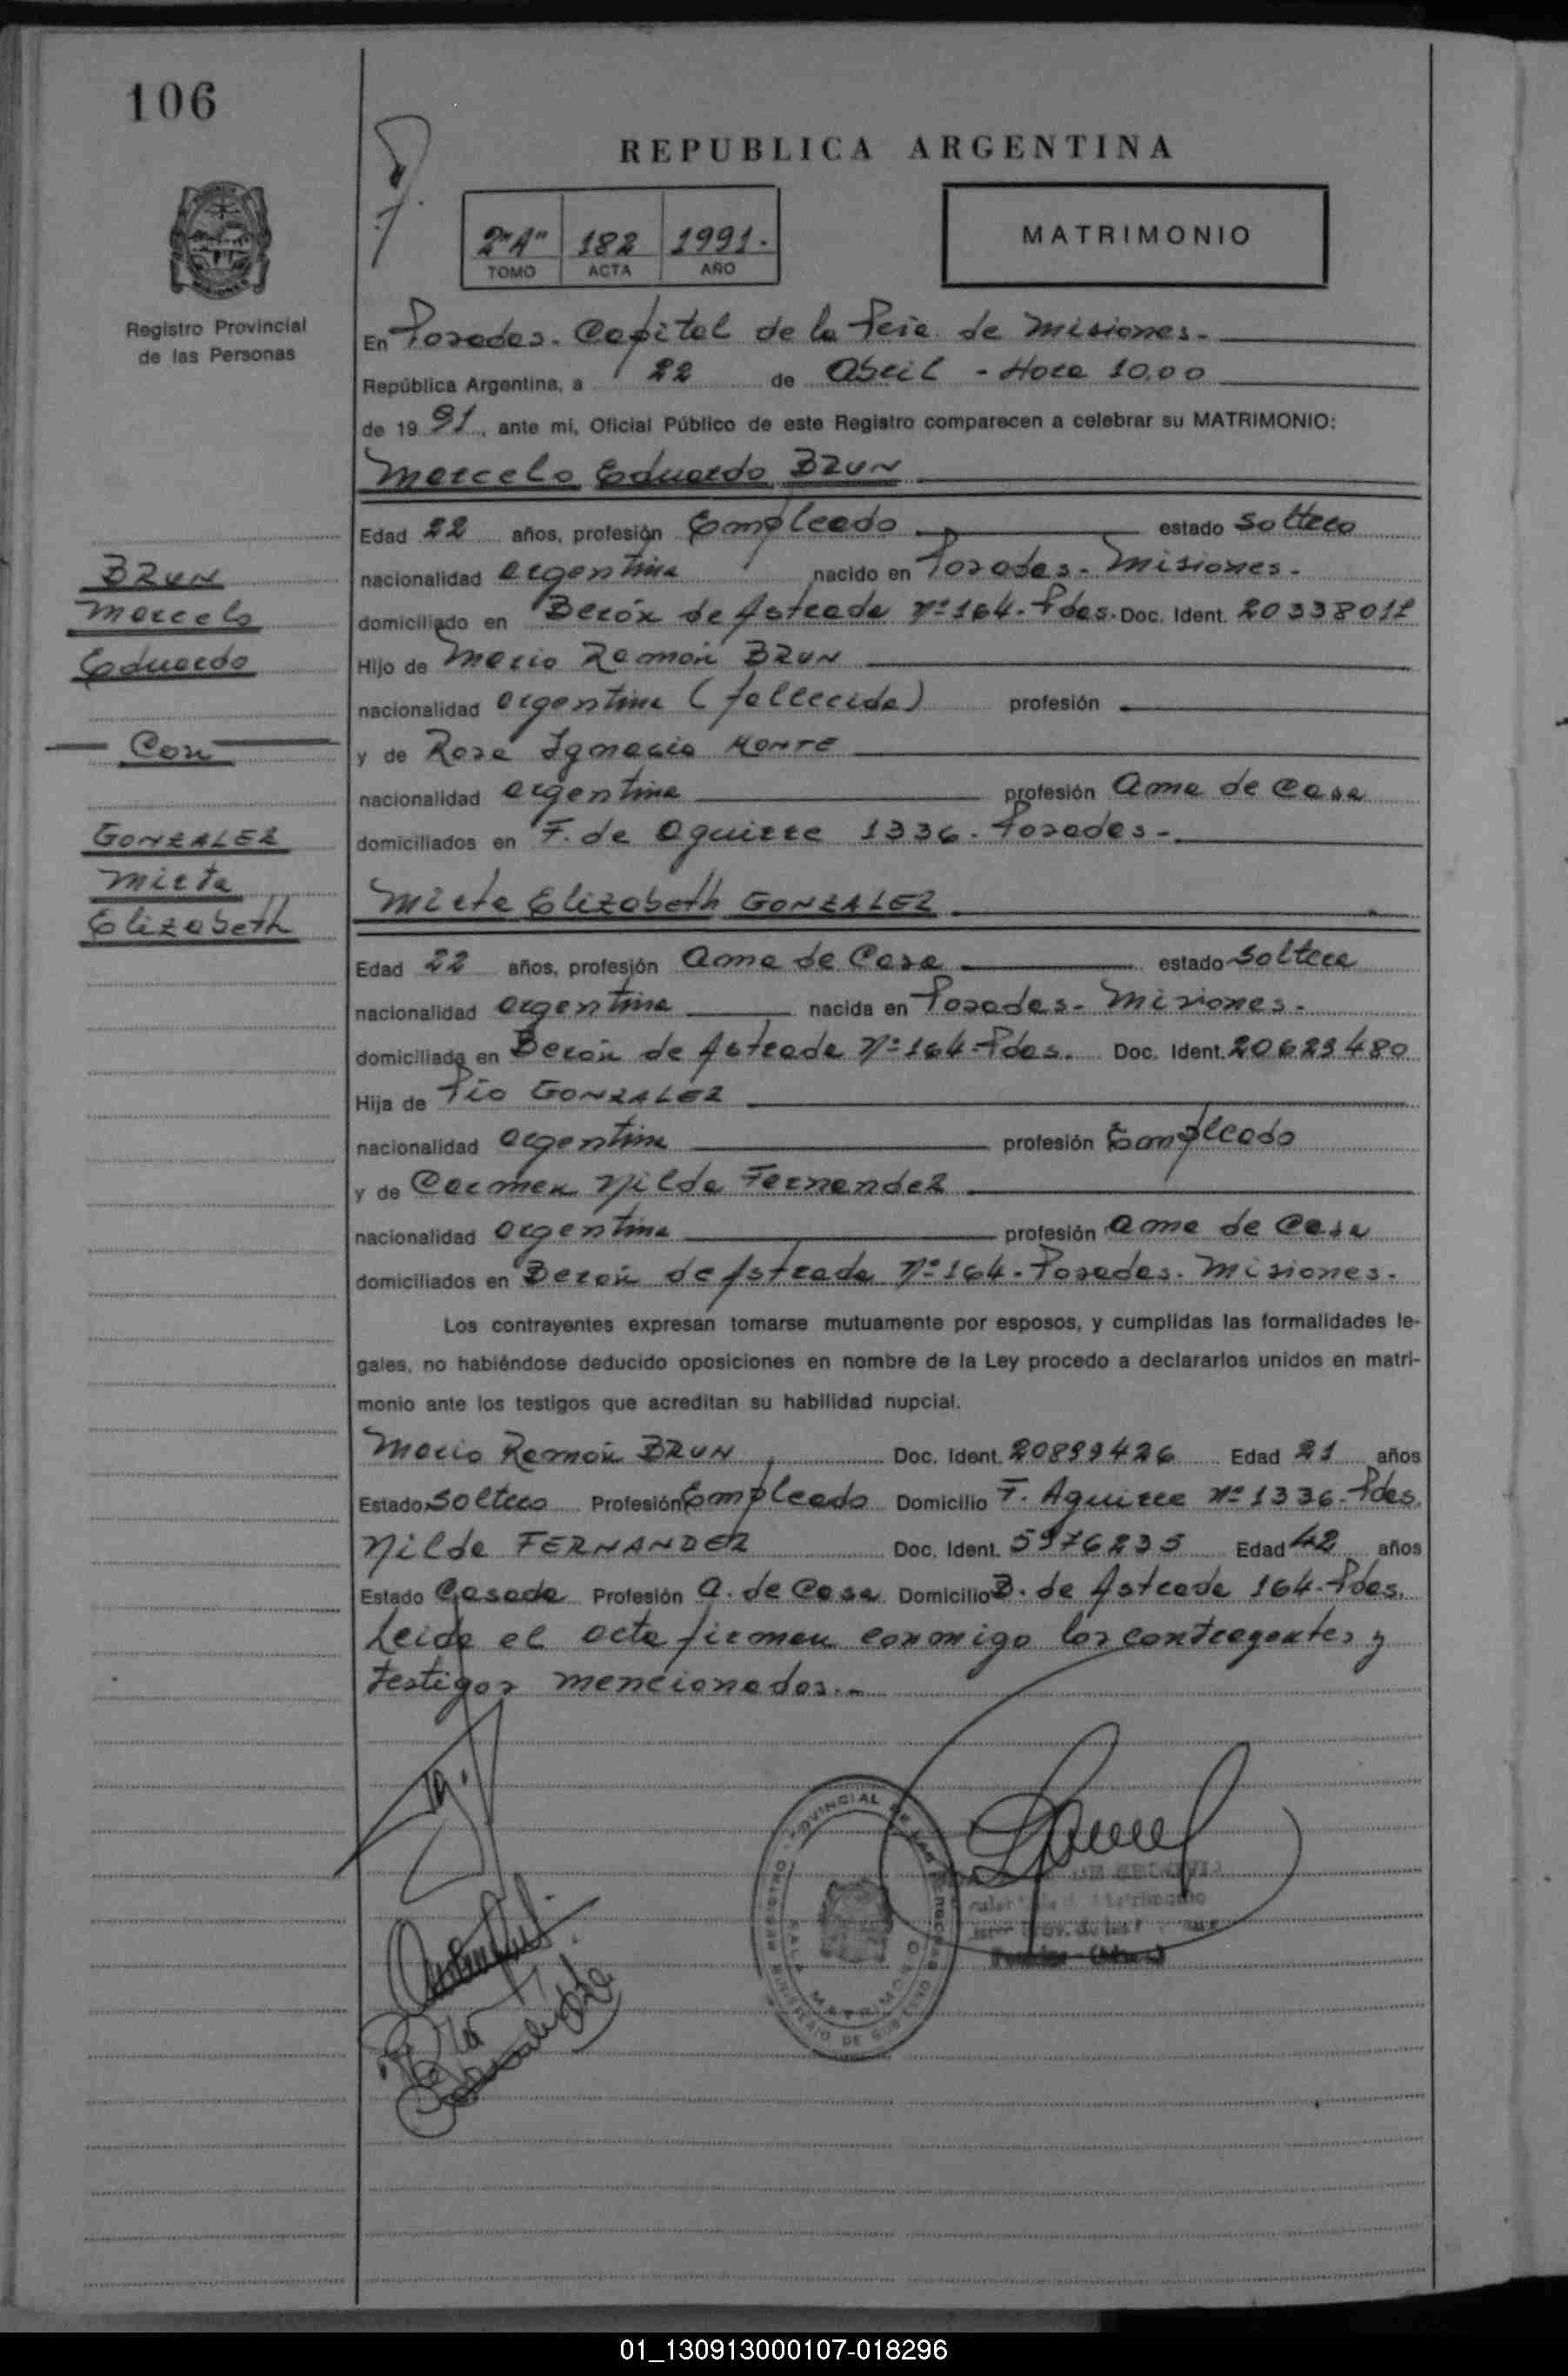 106
REPUBLICA ARGENTINA
2"A" 182 1991.
TOMO ACTA AÑO
MATRIMONIO
Registro Provincial
de las Personas
En Posadas. Capital de la Pcia. de Misiones.-
República Argentina, a 22 de Abril - Hora 10,00
de 19 91, ante mi, Oficial Público de este Registro comparecen a celebrar su MATRIMONIO:
Marcelo Eduardo BRUN
Edad 22 años, profesión Empleado estado soltero
BRUN
nacionalidad argentina nacido en Posadas - Misiones.
Marcelo
domiciliado en Berón de Astrada Nº 164. Pdas. Doc. Ident. 20338011
Eduardo
Hijo de Mario Ramón BRUN
nacionalidad argentina (fallecido) profesión
Con
y de Rosa Ignacia MONTE
nacionalidad argentina profesión Ama de Casa
GONZALEZ
domiciliados en F. de Aguirre 1336. Posadas-
Mirta
Mirta Elizabeth GONZALEZ
Elizabeth
Edad 22 años, profesión Ama de Casa estado soltera
nacionalidad argentina nacida en Posadas - Misiones.
domiciliada en Berón de Astrada Nº 164 - Pdas. Doc. Ident. 20629480
Hija de Pío GONZALEZ
nacionalidad argentina profesión Empleado
y de Carmen Nilda Fernandez
nacionalidad argentina profesión Ama de Casa
domiciliados en Berón de Astrada Nº 164. Posadas. Misiones.
Los contrayentes expresan tomarse mutuamente por esposos, y cumplidas las formalidades le-
gales, no habiéndose deducido oposiciones en nombre de la Ley procedo a declararlos unidos en matri-
monio ante los testigos que acreditan su habilidad nupcial.
Mario Ramón BRUN Doc. Ident. 20899426 Edad 21 años
Estado soltero Profesión Empleado Domicilio F. Aguirre Nº 1336. Pdas.
Nilda FERNANDEZ Doc. Ident. 5976235 Edad 42 años
Estado Casada Profesión A. de Casa Domicilio B. de Astrada 164. Pdas.
Leida el acta firman conmigo los contrayentes y
testigos mencionados.-
REGISTRO PROVINCIAL DE LAS PERSONAS
SALA MATRIMONIO
MINISTERIO DE GOBIERNO
01_130913000107-018296